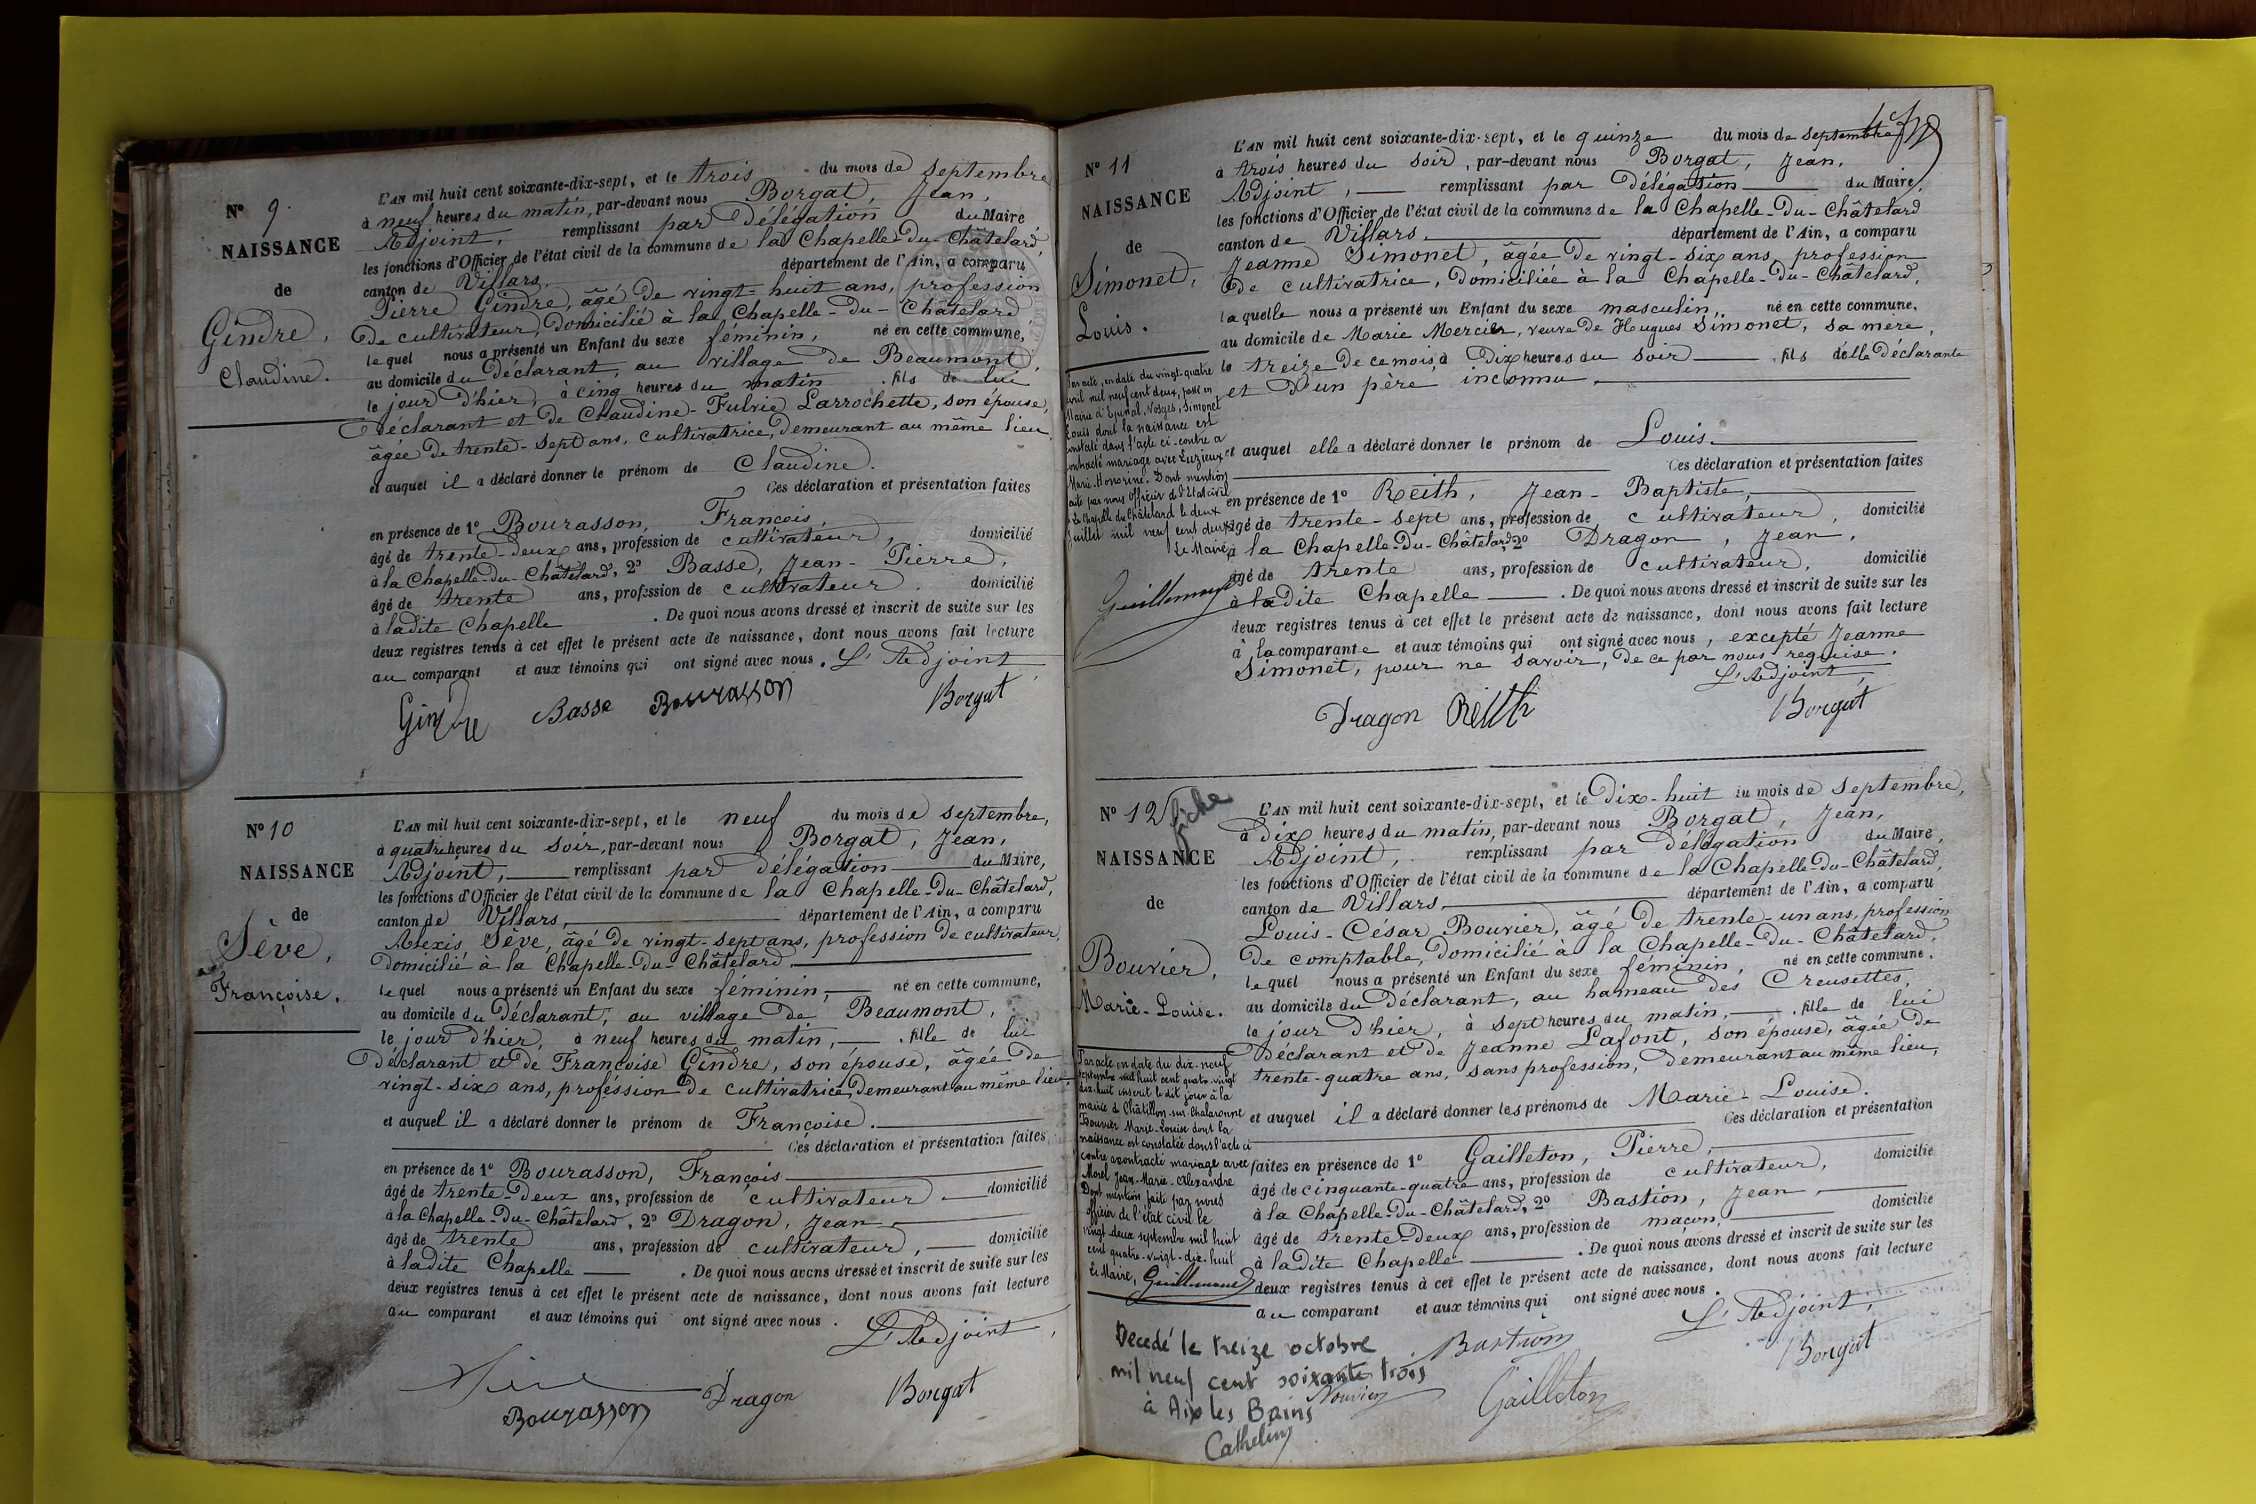 N° 9.
NAISSANCE
de
Gindre,
Claudine.
L'AN mil huit cent soixante-dix-sept, et le trois du mois de septembre
à neuf heures du matin, par-devant nous Borgat, Jean,
Adjoint, remplissant par Délégation du Maire
les fonctions d'Officier de l'état civil de la commune de la Chapelle-Du-Châtelard,
canton de Villars, département de l'Ain, a comparu
Pierre Gindre, âgé de vingt-huit ans, profession
de cultivateur, domicilié à la Chapelle-Du-Châtelard
lequel nous a présenté un Enfant du sexe féminin, né en cette commune,
au domicile du Déclarant, au village de Beaumont,
le jour d'hier, à cinq heures du matin, fils de lui
Déclarant et de Claudine-Fulvie Larrochette, son épouse,
âgée de trente-sept ans, cultivatrice, demeurant au même lieu,
et auquel il a déclaré donner le prénom de Claudine.
Ces déclaration et présentation faites
en présence de 1° Bourasson, François,
âgé de trente-deux ans, profession de cultivateur, domicilié
à la Chapelle-Du-Châtelard, 2° Basse, Jean-Pierre,
âgé de trente ans, profession de cultivateur, domicilié
à ladite Chapelle. De quoi nous avons dressé et inscrit de suite sur les
deux registres tenus à cet effet le présent acte de naissance, dont nous avons fait lecture
au comparant et aux témoins qui ont signé avec nous. L'Adjoint,
Gindre Basse Bourasson Borgat
N° 10
NAISSANCE
de
Sève,
Françoise.
L'AN mil huit cent soixante-dix-sept, et le neuf du mois de septembre,
à quatre heures du soir, par-devant nous Borgat, Jean,
Adjoint, remplissant par délégation du Maire,
les fonctions d'Officier de l'état civil de la commune de la Chapelle-Du-Châtelard,
canton de Villars, département de l'Ain, a comparu
Alexis Sève, âgé de vingt-sept ans, profession de cultivateur,
domicilié à la Chapelle-Du-Châtelard,
lequel nous a présenté un Enfant du sexe féminin, né en cette commune,
au domicile du Déclarant, au village de Beaumont,
le jour d'hier, à neuf heures du matin, fille de lui
Déclarant et de Françoise Gindre, son épouse, âgée de
vingt-six ans, profession de cultivatrice, demeurant au même lieu,
et auquel il a déclaré donner le prénom de Françoise.
Ces déclaration et présentation faites
en présence de 1° Bourasson, François
âgé de trente-deux ans, profession de cultivateur, domicilié
à la Chapelle-Du-Châtelard, 2° Dragon, Jean
âgé de trente ans, profession de cultivateur, domicilié
à ladite Chapelle. De quoi nous avons dressé et inscrit de suite sur les
deux registres tenus à cet effet le présent acte de naissance, dont nous avons fait lecture
au comparant et aux témoins qui ont signé avec nous. L'Adjoint,
Sève Dragon Borgat
Bourasson
N° 11
NAISSANCE
de
Simonet,
Louis.
L'AN mil huit cent soixante-dix-sept, et le quinze du mois de septembre
à trois heures du soir, par-devant nous Borgat, Jean,
Adjoint, remplissant par Délégation du Maire,
les fonctions d'Officier de l'état civil de la commune de la Chapelle-Du-Châtelard
canton de Villars, département de l'Ain, a comparu
Jeanne Simonet, âgée de vingt-six ans, profession
de cultivatrice, domiciliée à la Chapelle-Du-Châtelard,
laquelle nous a présenté un Enfant du sexe masculin, né en cette commune,
au domicile de Marie Mercier, veuve de Hugues Simonet, sa mère,
le treize de ce mois, à dix heures du soir, fils d'elle Déclarante
et d'un père inconnu
et auquel elle a déclaré donner le prénom de Louis.
Ces déclaration et présentation faites
en présence de 1° Reith, Jean-Baptiste,
âgé de trente-sept ans, profession de cultivateur, domicilié
à la Chapelle-Du-Châtelard, 2° Dragon, Jean,
âgé de trente ans, profession de cultivateur, domicilié
à ladite Chapelle. De quoi nous avons dressé et inscrit de suite sur les
deux registres tenus à cet effet le présent acte de naissance, dont nous avons fait lecture
à la comparante et aux témoins qui ont signé avec nous, excepté Jeanne
Simonet, pour ne savoir, de ce par nous requise.
L'Adjoint,
Dragon Reith Borgat
Par acte, en date du vingt-quatre
avril mil neuf cent deux, passé en
Mairie d'Epinal, Vosges, Simonet
Louis dont la naissance est
constatée dans l'acte ci-contre a
contracté mariage avec Luzieux
Marie-Honorine. Dont mention
faite par nous Officier de l'Etat civil
à La Chapelle du Châtelard le deux
Juillet mil neuf cent deux.
Le Maire,
Guillemaud
N° 12
fiche
NAISSANCE
de
Bouvier,
Marie-Louise.
L'AN mil huit cent soixante-dix-sept, et le Dix-huit du mois de septembre,
à dix heures du matin, par-devant nous Borgat, Jean,
Adjoint, remplissant par délégation du Maire,
les fonctions d'Officier de l'état civil de la commune de la Chapelle-Du-Châtelard,
canton de Villars, département de l'Ain, a comparu
Louis-César Bouvier, âgé de trente-un ans, profession
de comptable, domicilié à la Chapelle-Du-Châtelard,
lequel nous a présenté un Enfant du sexe féminin, né en cette commune,
au domicile du Déclarant, au hameau des Creusettes,
le jour d'hier, à sept heures du matin, fille de lui
Déclarant et de Jeanne Lafont, son épouse, âgée de
trente-quatre ans, sans profession, demeurant au même lieu,
et auquel il a déclaré donner les prénoms de Marie-Louise.
Ces déclaration et présentation
faites en présence de 1° Gailleton, Pierre,
âgé de cinquante-quatre ans, profession de cultivateur, domicilié
à la Chapelle-Du-Châtelard, 2° Bastion, Jean,
âgé de trente-deux ans, profession de maçon, domicilié
à ladite Chapelle. De quoi nous avons dressé et inscrit de suite sur les
deux registres tenus à cet effet le présent acte de naissance, dont nous avons fait lecture
au comparant et aux témoins qui ont signé avec nous.
L'Adjoint,
Bastion Borgat
Bouvier Gailleton
Par acte en date du dix-neuf
septembre mil huit cent quatre-vingt
dix-huit inscrit le dit jour à la
mairie de Châtillon-sur-Chalaronne
Bouvier Marie-Louise dont la
naissance est constatée dans l'acte ci
contre a contracté mariage avec
Morel Jean-Marie-Alexandre
Dont mention faite par nous
officier de l'état civil le
vingt-deux septembre mil huit
cent quatre-vingt-dix-huit
Le Maire, Guillemaud
Decedé le treize octobre
mil neuf cent soixante trois
à Aix les Bains
Cathelin